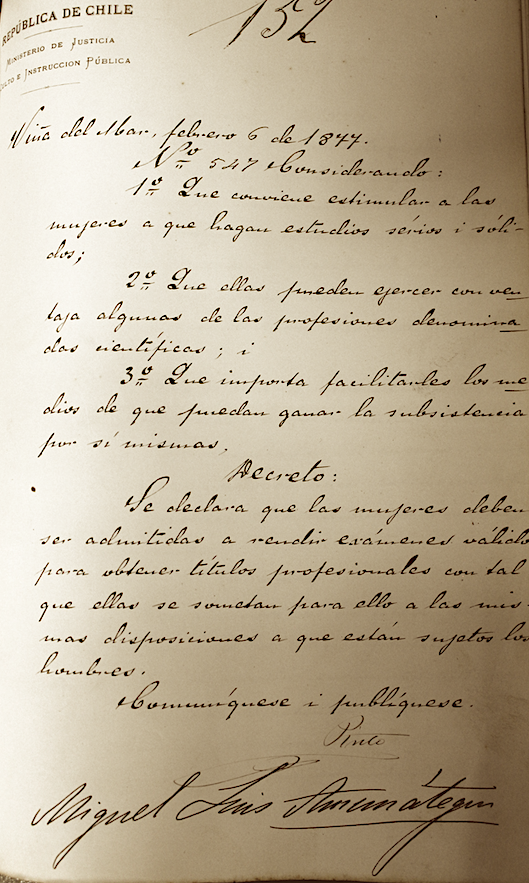 REPÚBLICA DE CHILE
MINISTERIO DE JUSTICIA
CULTO E INSTRUCCION PÚBLICA
152
Viña del Mar, febrero 6 de 1877.
Nº 547 Considerando:
1º Que conviene estimular a las
mujeres a que hagan estudios sérios i sóli-
dos;
2º Que ellas pueden ejercer con ven-
taja algunas de las profesiones denomina
das científicas; i
3º Que importa facilitarles los me
dios de que puedan ganar la subsistencia
por sí mismas,
Decreto:
Se declara que las mujeres deben
ser admitidas a rendir exámenes válidos
para obtener títulos profesionales con tal
que ellas se sometan para ello a las mis-
mas disposiciones a que están sujetos los
hombres.
Comuníquese i publíquese.
Pinto
Miguel Luis Amunátegui